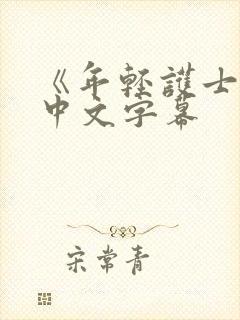 《年轻護士
中文字幕
宋常青